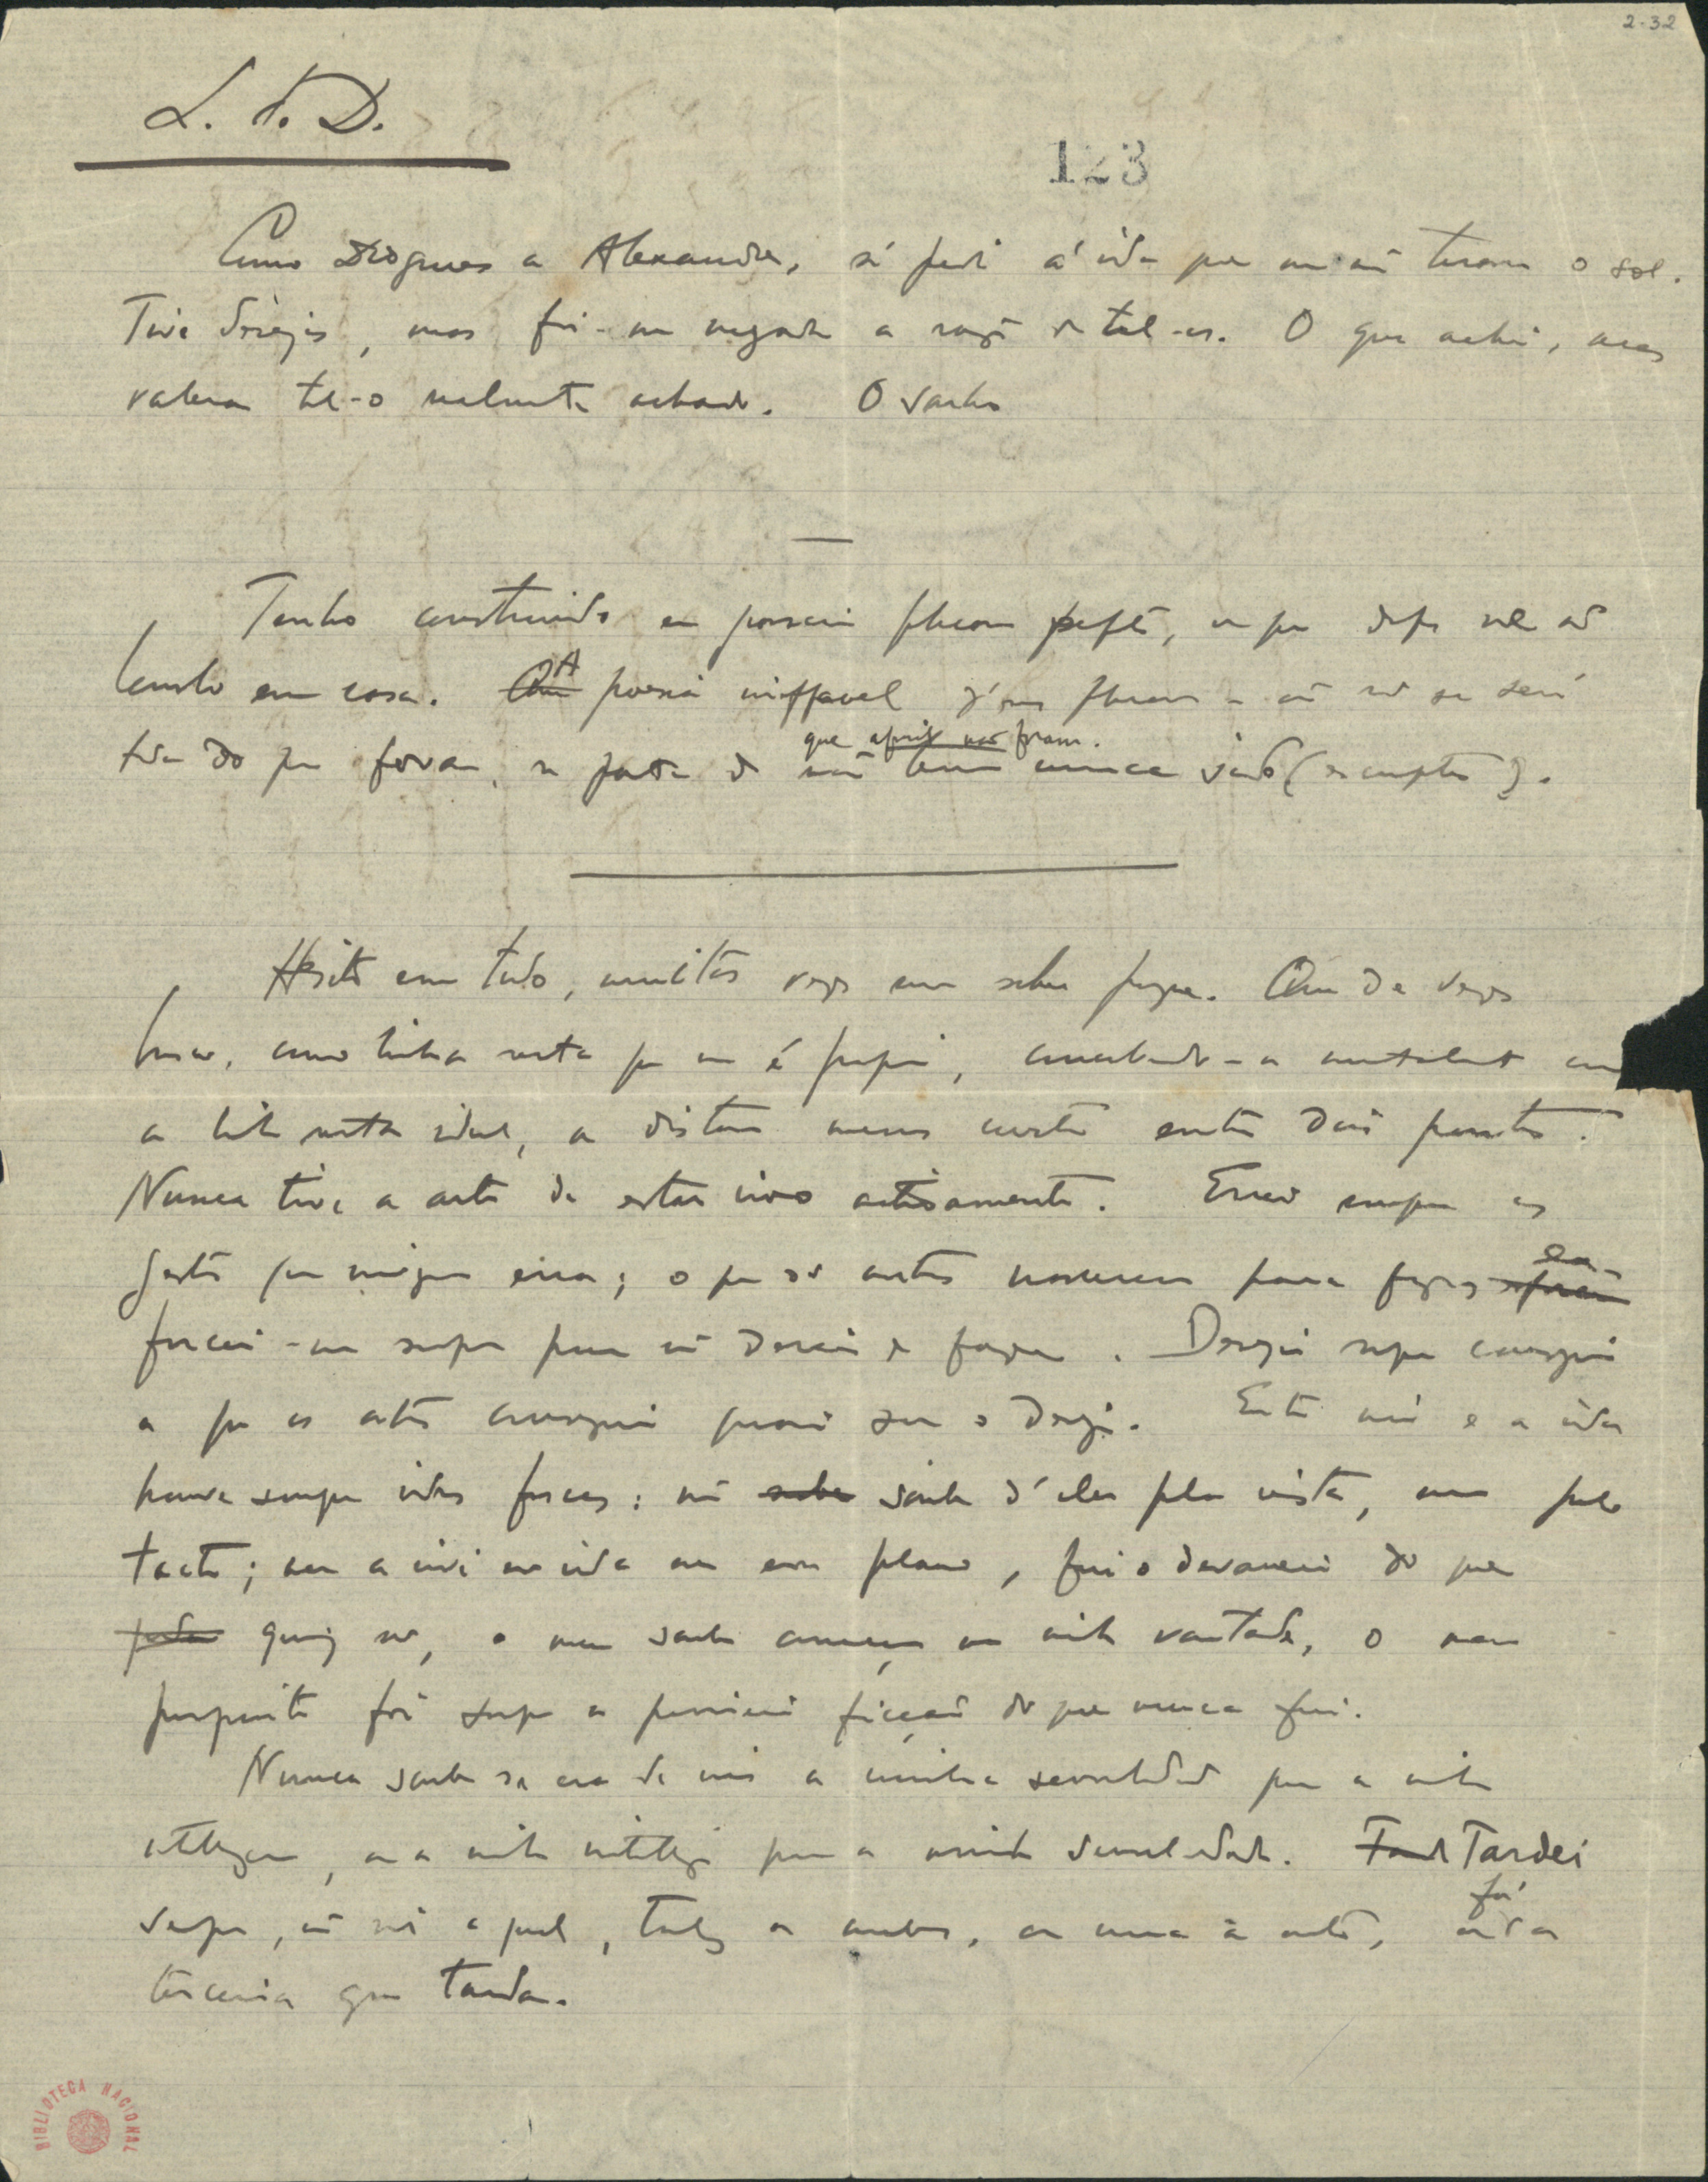 2-32
L. do D.
123
Como Diogenes a Alexandre, só pedi á vida que me não tirasse o sol.
Tive desejos, mas foi-me negada a razão de tel-os. O que achei, mais
valera tel-o realmente achado. O sonho
Tenho construido em passeio phrases perfeitas, de que depois me não
lembro em casa. A poesia ineffavel d'essas phrases não sei se será
toda do que foram, se parte de não terem nunca sido (escriptas).
que afinal não foram.
Hesito em tudo, muitas vezes sem saber porque. Que de vezes
busco, como linha recta que me é propria, concebendo-a mentalmente como
a linha recta ideal, a distancia menos curta entre dois pontos.
Nunca tive a arte de estar vivo activamente. Errei sempre os
gestos que ninguem erra; o que os outros nasceram para fazer, es-
forcei-me sempre para não deixar de fazer. Desejei sempre conseguir
o que os outros conseguiram quasi sem o desejar. Entre mim e a vida
houve sempre vidros foscos: não soube d'elles pela vista, nem pelo
tacto; nem a vivi essa vida ou esse plano, fui o devaneio do que
quiz ser, o meu sonho começou na minha vontade, o meu
proposito foi sempre a primeira ficção do que nunca fui.
Nunca soube se era de mais a minha sensibilidade para a minha
intelligencia, ou a minha intelligencia para a minha sensibilidade. Tardei
sempre, não sei a qual, talvez a ambas, ou uma a outra, foi a
terceira que tardou.
BIBLIOTECA NACIONAL